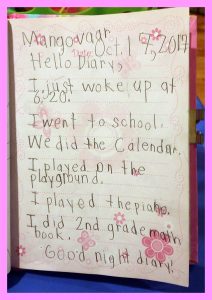 Mangovaar
Date: Oct. 17, 2017
Hello Diary,
I just woke up at
6:20.
I went to school.
We did the Calendar.
I played on the
playground.
I played the piano.
I did 2nd grade math
book.
Good night diary!